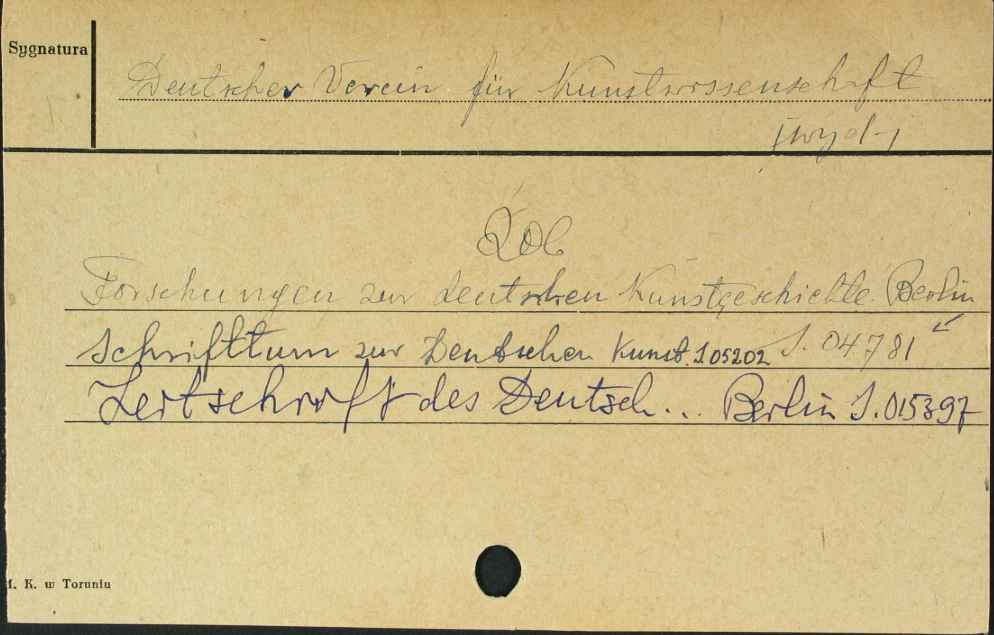 Sygnatura
Deutscher Verein für Kunstwissenschaft
[wyd-]
Zob
Forschungen zur deutschen Kunstgeschichte. Berlin
S. 04781
Schrifttum zur Deutschen Kunst. S 05202
Zeitschrift des Deutsch... Berlin S. 015397
K. w Toruniu